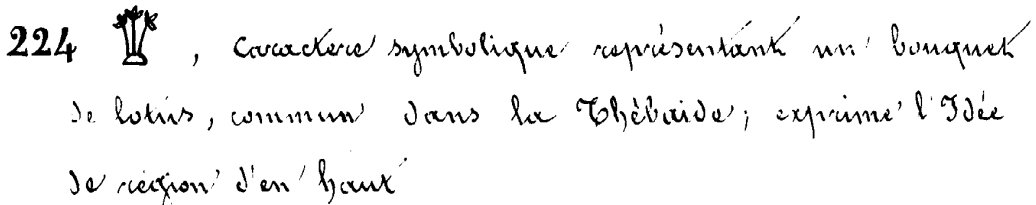 224 , Caractere symbolique représentant un bouquet
de lotus, commun dans la Thébaide; exprime l'Idée
de région d'en haut